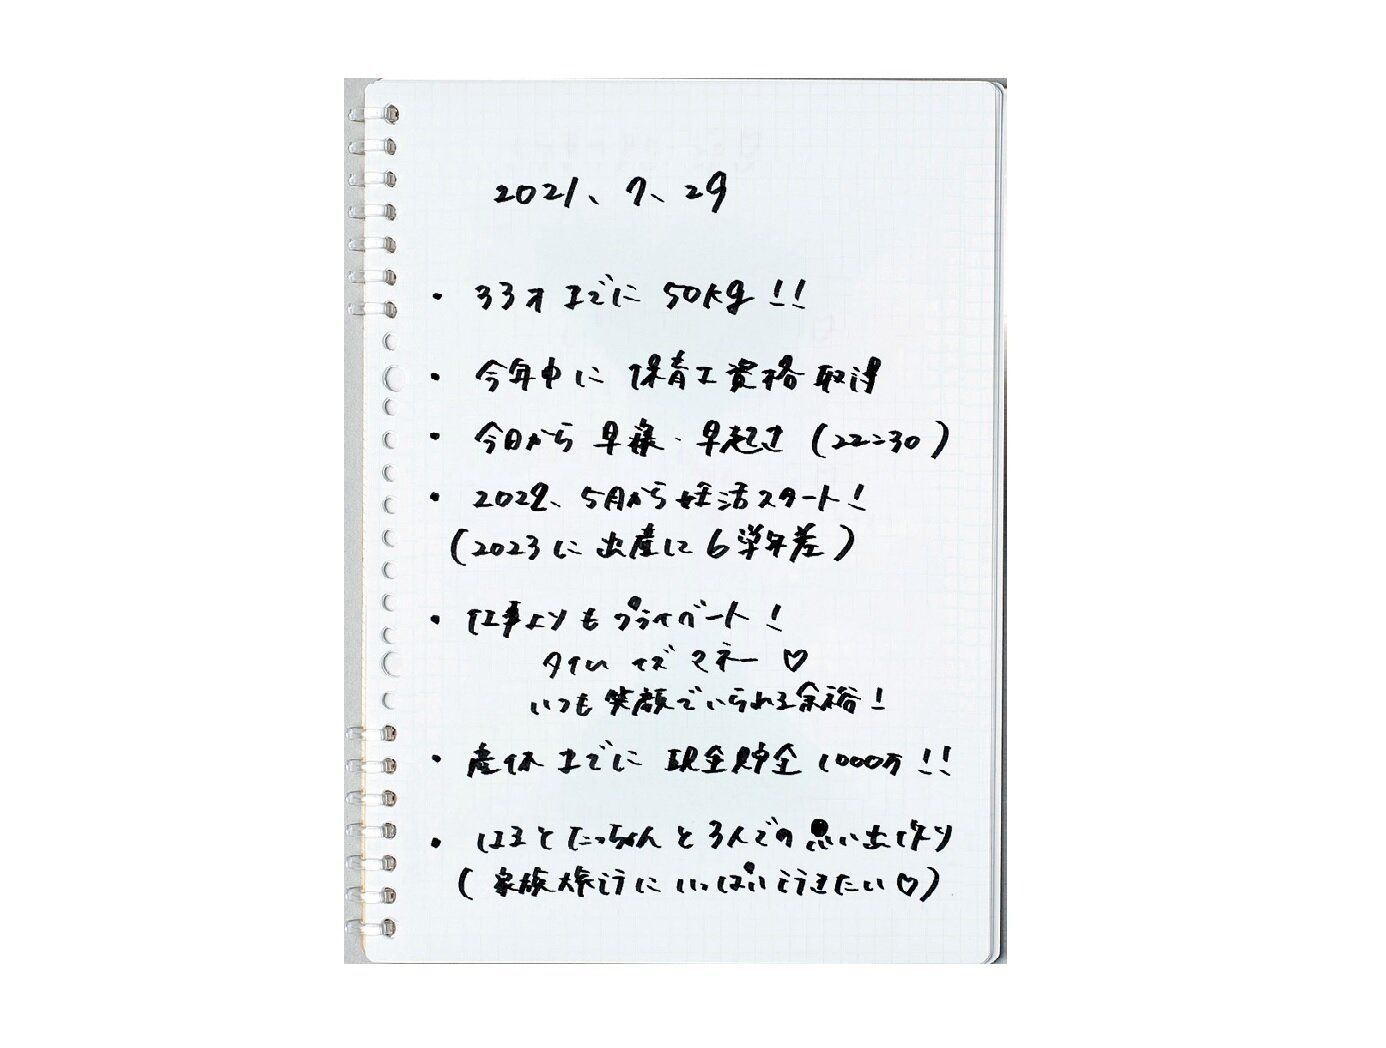 2021、7、29
・33才までに 50kg!!
・今年中に 保育士資格取得
・今日から 早寝・早起き (22:30)
・2022、5月から妊活スタート!
(2023に出産に6学年差)
・仕事よりも プライベート!
タイム イズ マネー ♡
いつも笑顔でいられる余裕!
・産休までに 現金貯金 1000万!!
・はると たっちゃんと 3人での思い出作り
(家族旅行に いっぱい行きたい♡)